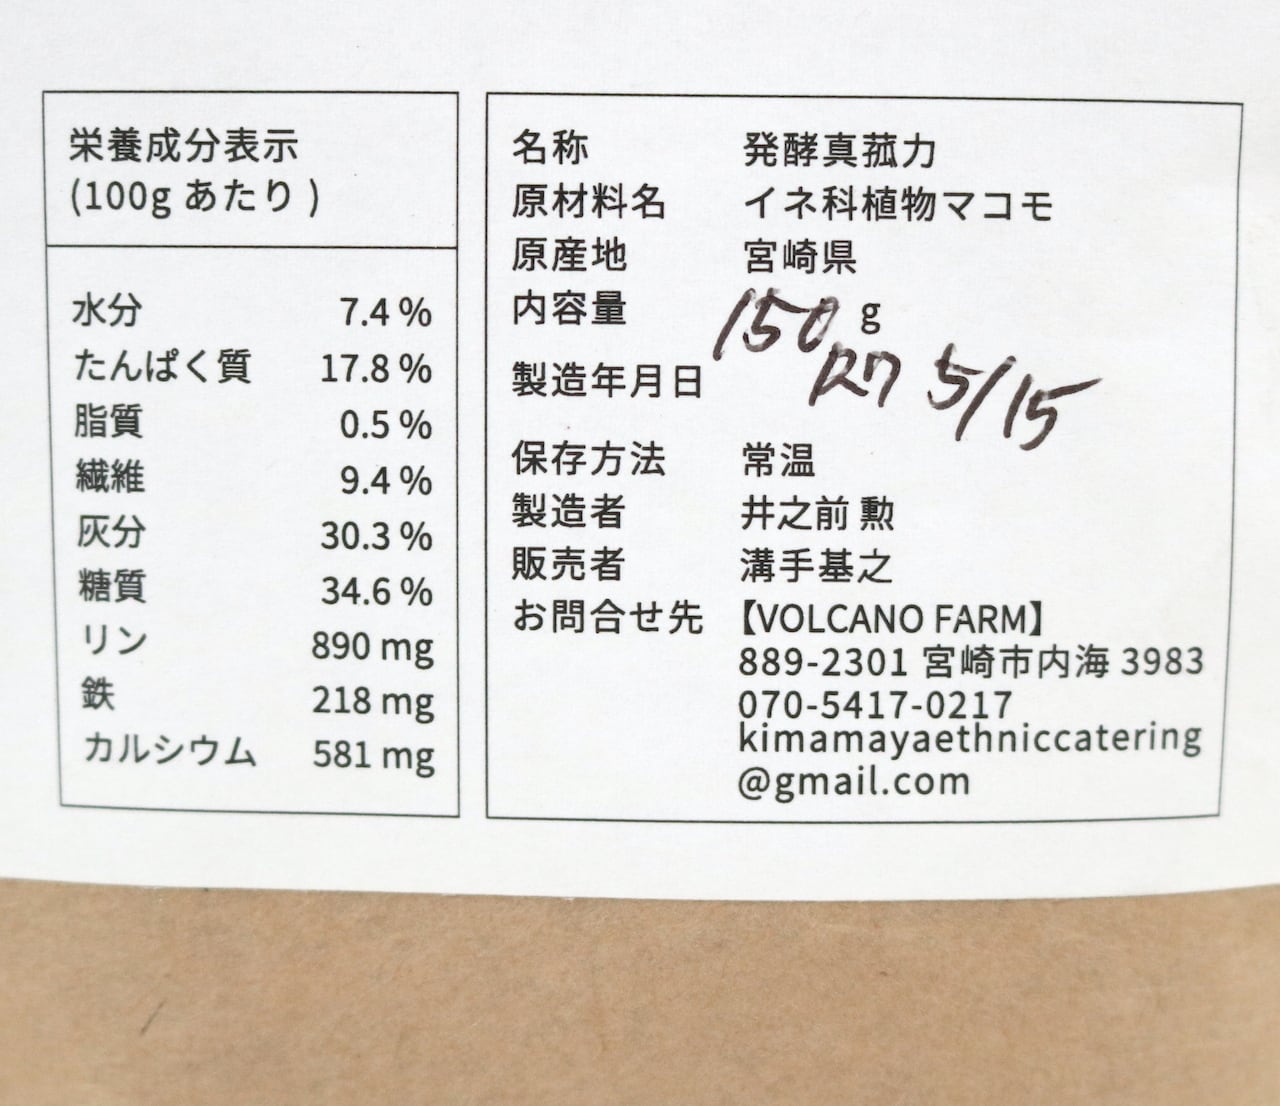 栄養成分表示
(100g あたり )
水分 7.4 %
たんぱく質 17.8 %
脂質 0.5 %
繊維 9.4 %
灰分 30.3 %
糖質 34.6 %
リン 890 mg
鉄 218 mg
カルシウム 581 mg
名称 発酵真菰力
原材料名 イネ科植物マコモ
原産地 宮崎県
内容量 150 g
製造年月日 R7 5/15
保存方法 常温
製造者 井之前 勲
販売者 溝手基之
お問合せ先 【VOLCANO FARM】
889-2301 宮崎市内海 3983
070-5417-0217
kimamayaethniccatering
@gmail.com